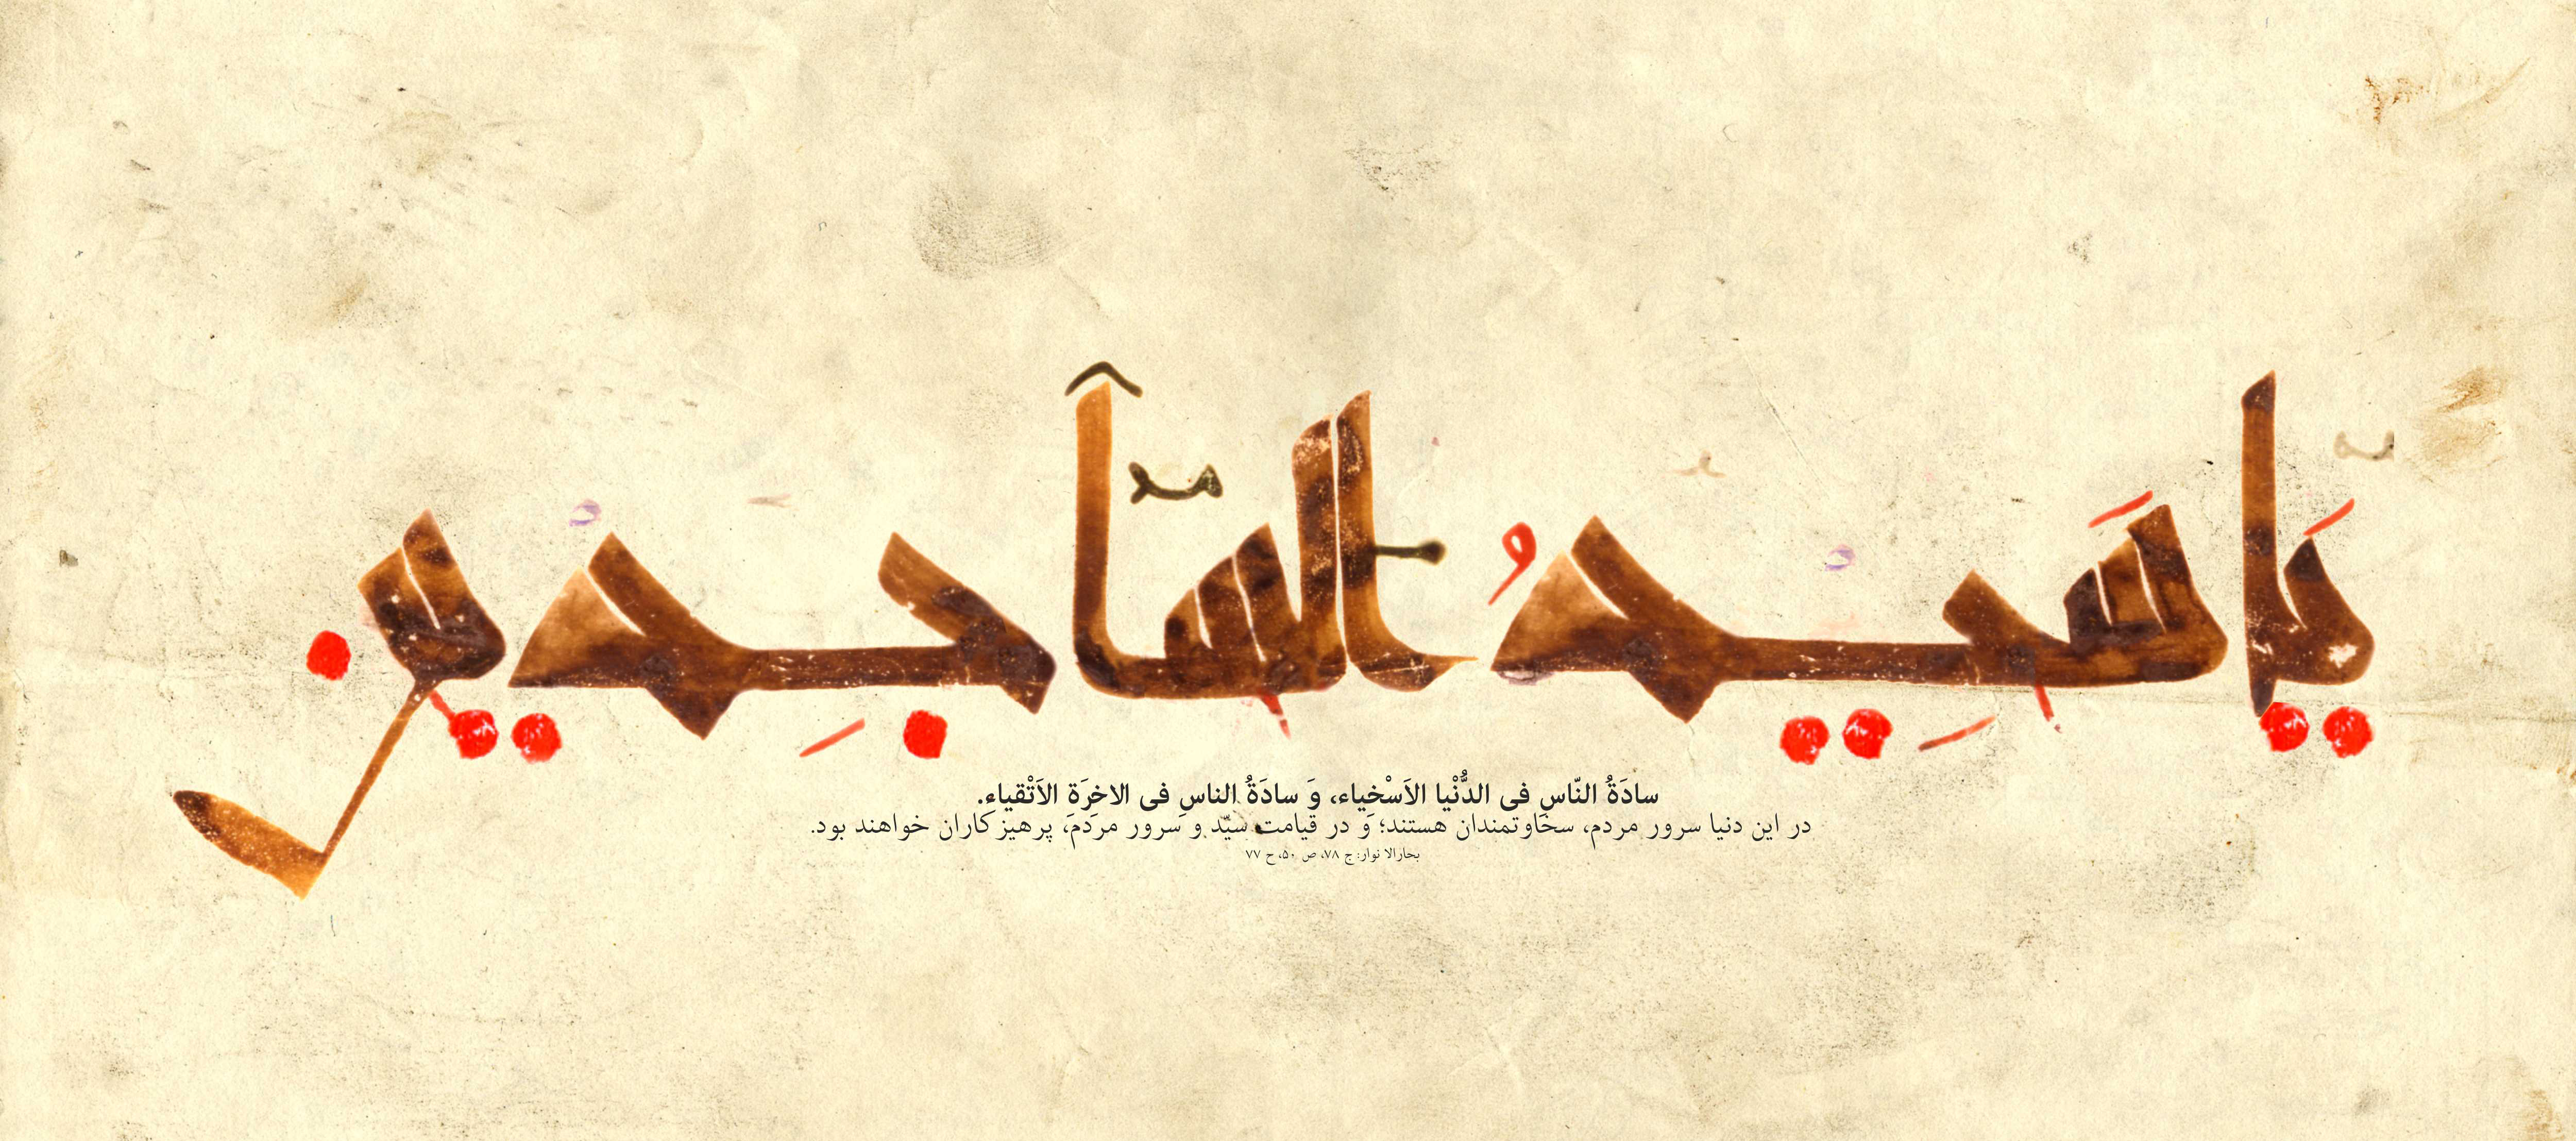 یا سید الساجدین
سادَةُ النّاسِ فی الدُّنْیا الاَسْخِیاء، وَ سادَةُ الناسِ فی الاخِرَةِ الاَتْقیاء.
در این دنیا سرور مردم، سخاوتمندان هستند؛ و در قیامت سیّد و سرور مردم، پرهیزکاران خواهند بود.
بحارالا نوار: ج ۷۸، ص ۵۰، ح ۷۷